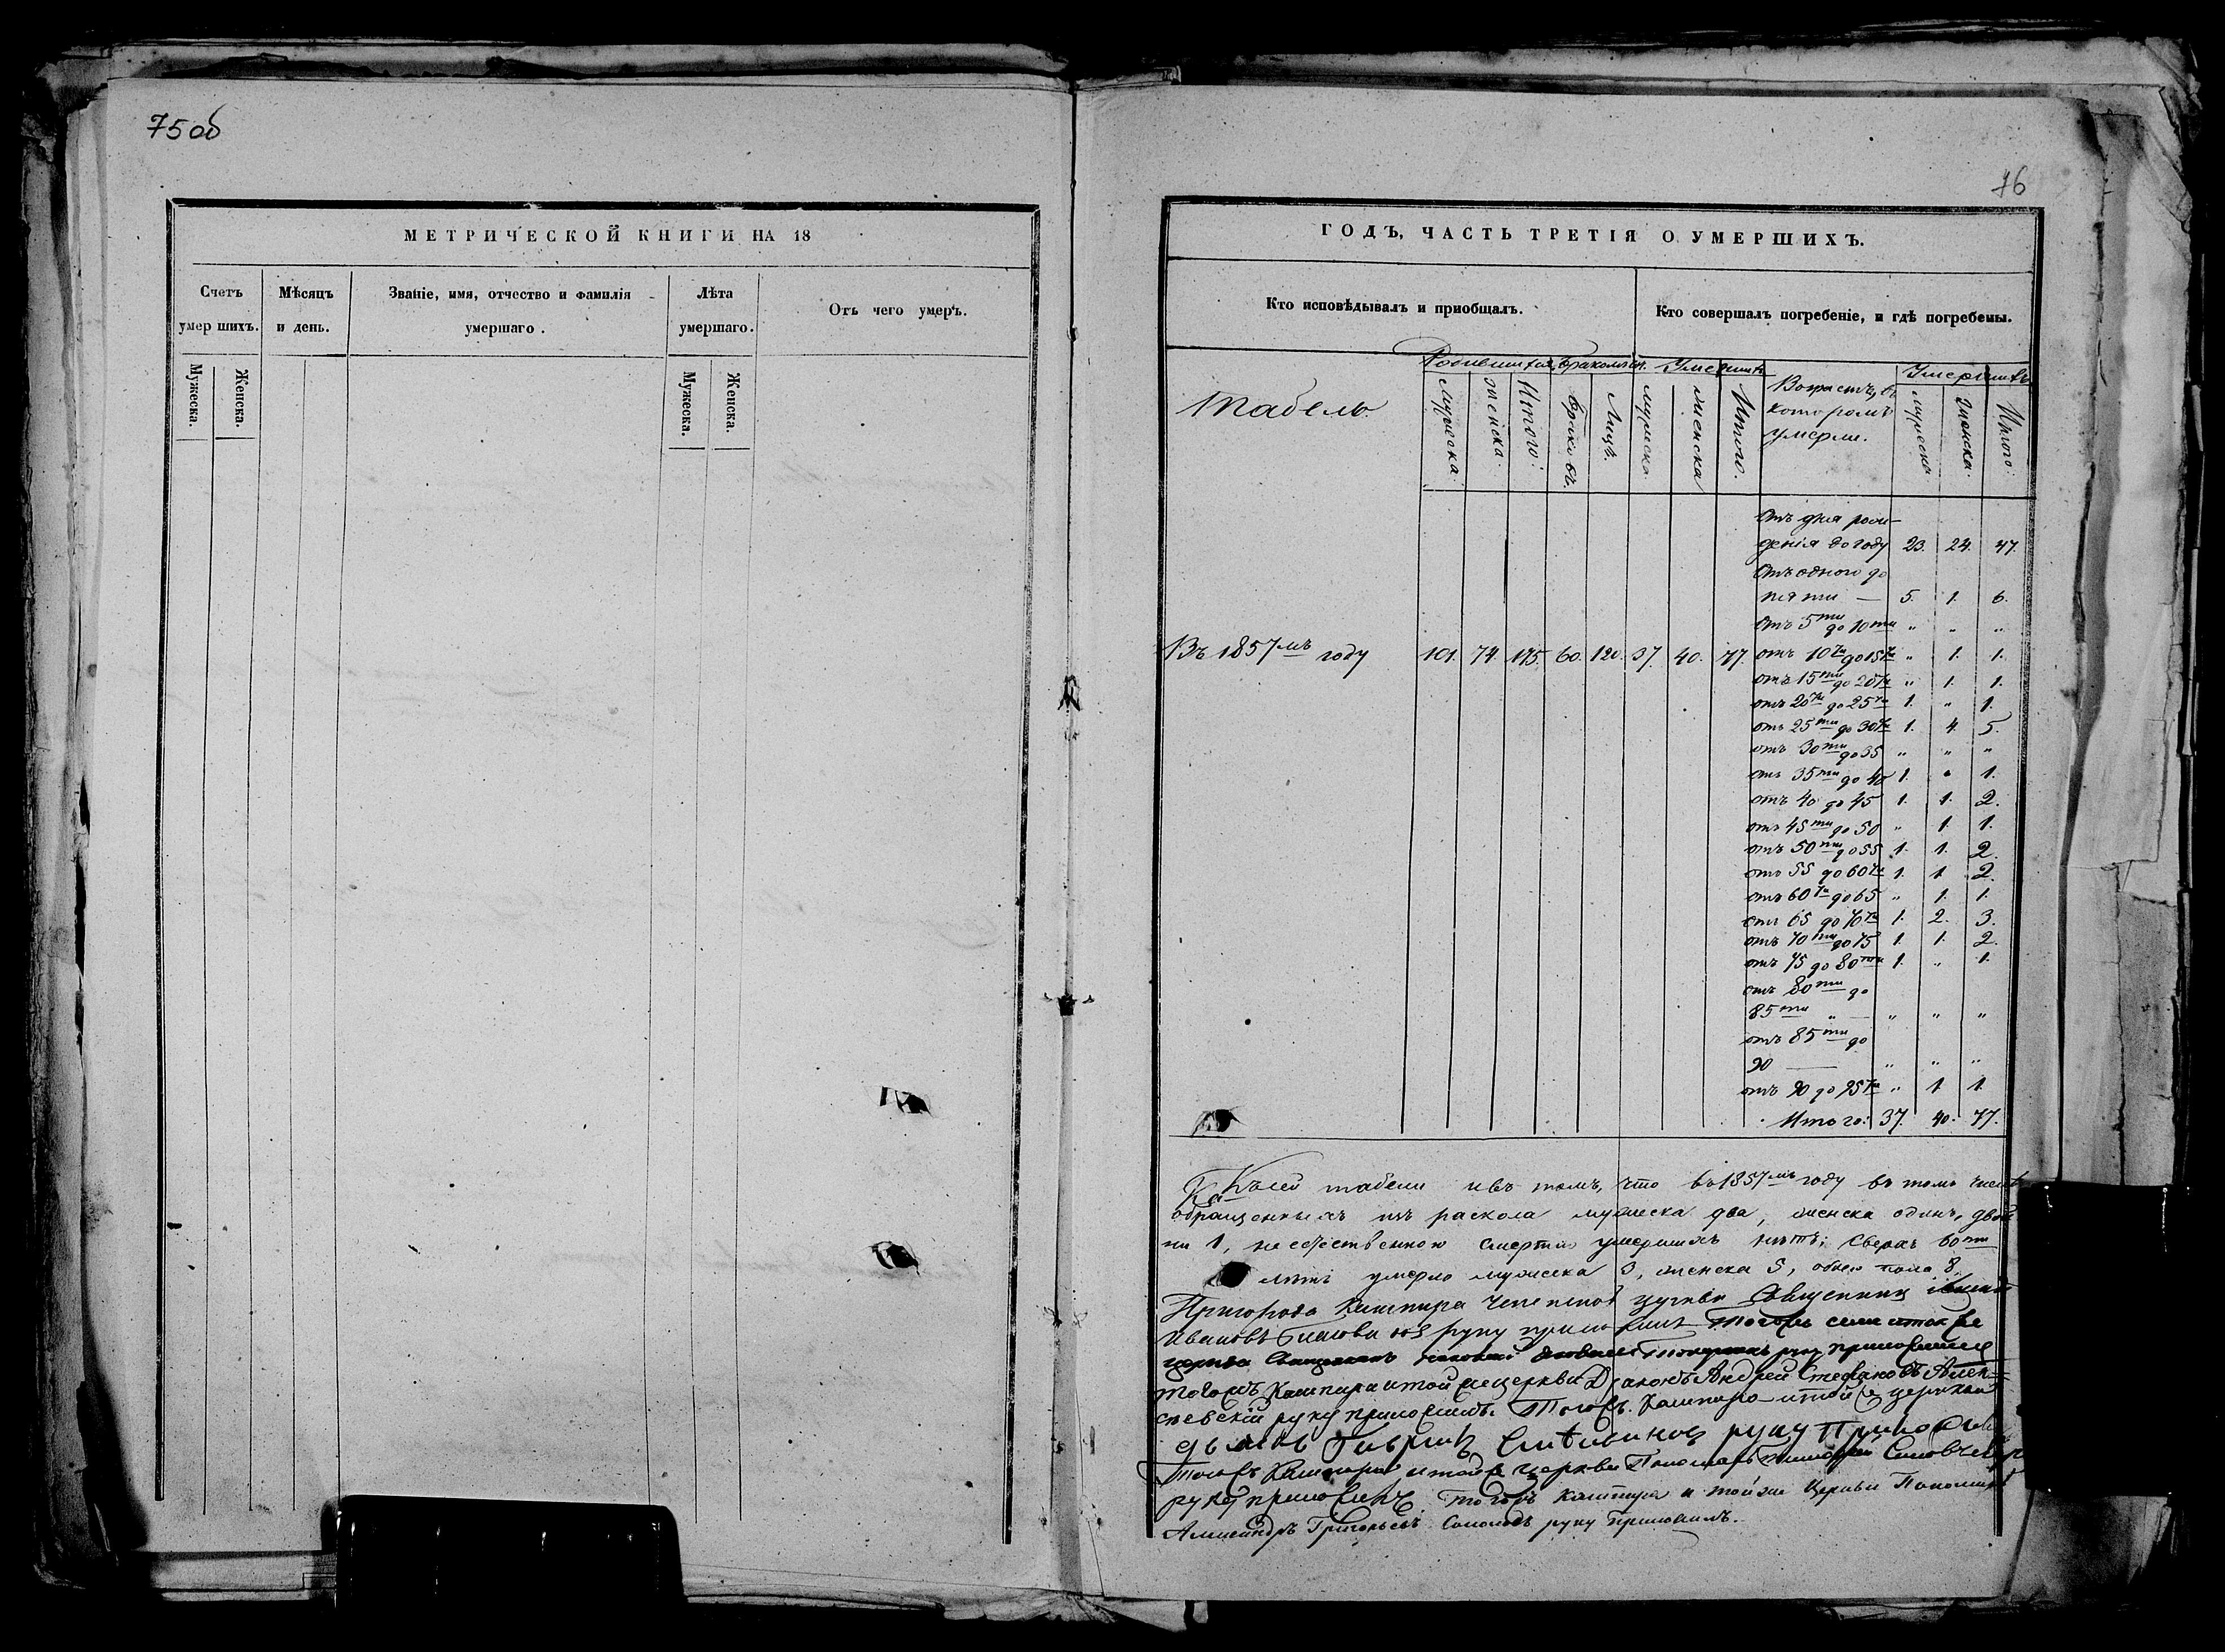 75об
МЕТРИЧЕСКОЙ КНИГИ НА 18
Счетъ умерших.
Мѣсяцъ и день.
Званіе, имя, отчество и фамилія умершаго.
Лѣта умершаго.
Отъ чего умеръ.
Мужеска.
Женска.
Мужеска.
Женска.
76
ГОДЪ, ЧАСТЬ ТРЕТІЯ О УМЕРШИХЪ.
Кто исповѣдывалъ и приобщалъ.
Кто совершалъ погребеніе, и гдѣ погребены.
Табель
Родившихся
Мужеска.
Женска.
Итого.
Браковъ.
Лицъ.
Мужеска.
Женска
Итого.
Возрастъ, въ
которомъ
умерли.
Умершихъ
мужеска
женска.
Итого.
Отъ дня рож-
денія до году 23. 24. 47.
Отъ одного до
пяти — 5. 1. 6.
Отъ 5ти до 10ти „ „ „
Въ 1857мъ году 101. 74. 175. 60. 120. 37. 40. 77.
отъ 10ти до 15ти „ 1. 1.
отъ 15ти до 20ти „ 1. 1.
отъ 20ти до 25ти 1. „ 1.
отъ 25ти до 30ти 1. 4. 5.
отъ 30ти до 35 „ „ „
отъ 35ти до 40 1. „ 1.
отъ 40 до 45 1. 1. 2.
отъ 45ти до 50 „ 1. 1.
отъ 50ти до 55 1. 1. 2.
отъ 55 до 60ти 1. 1 2.
отъ 60ти до 65 „ 1. 1.
отъ 65 до 70ти 1. 2. 3.
отъ 70ти до 75 1. 1. 2.
отъ 75 до 80ти 1. „ 1.
отъ 80ти до
85ти „ — „ „ „
отъ 85ти до
90 — „ „ „
отъ 90 до 95ти „ 1 1.
Итого: 37. 40. 77.
Къ сей табели и въ томъ, что въ 1857мъ году въ томъ числѣ
обращенныхъ изъ раскола мужеска два, женска одинъ, двой
ни 1, неестественною смертію умершихъ нѣтъ; сверхъ 60ти
лѣтъ умерло мужеска 3, женска 5, обоего пола 8.
Пригорода Кашпира церкви Священникъ
Ивановъ руку приложилъ
тогожъ Кашпира и той же церкви Діаконъ Андрей Стефановъ Алек-
сѣевскій руку приложилъ. Тогожъ Кашпира и той же церкви
дьячокъ Гавриилъ руку приложилъ
Тогожъ Кашпира и той же церкви Пономарь
руку приложилъ. Тогожъ Кашпира и той же Церкви Пономарь
Александръ Григорьевъ Соколовъ руку приложилъ.